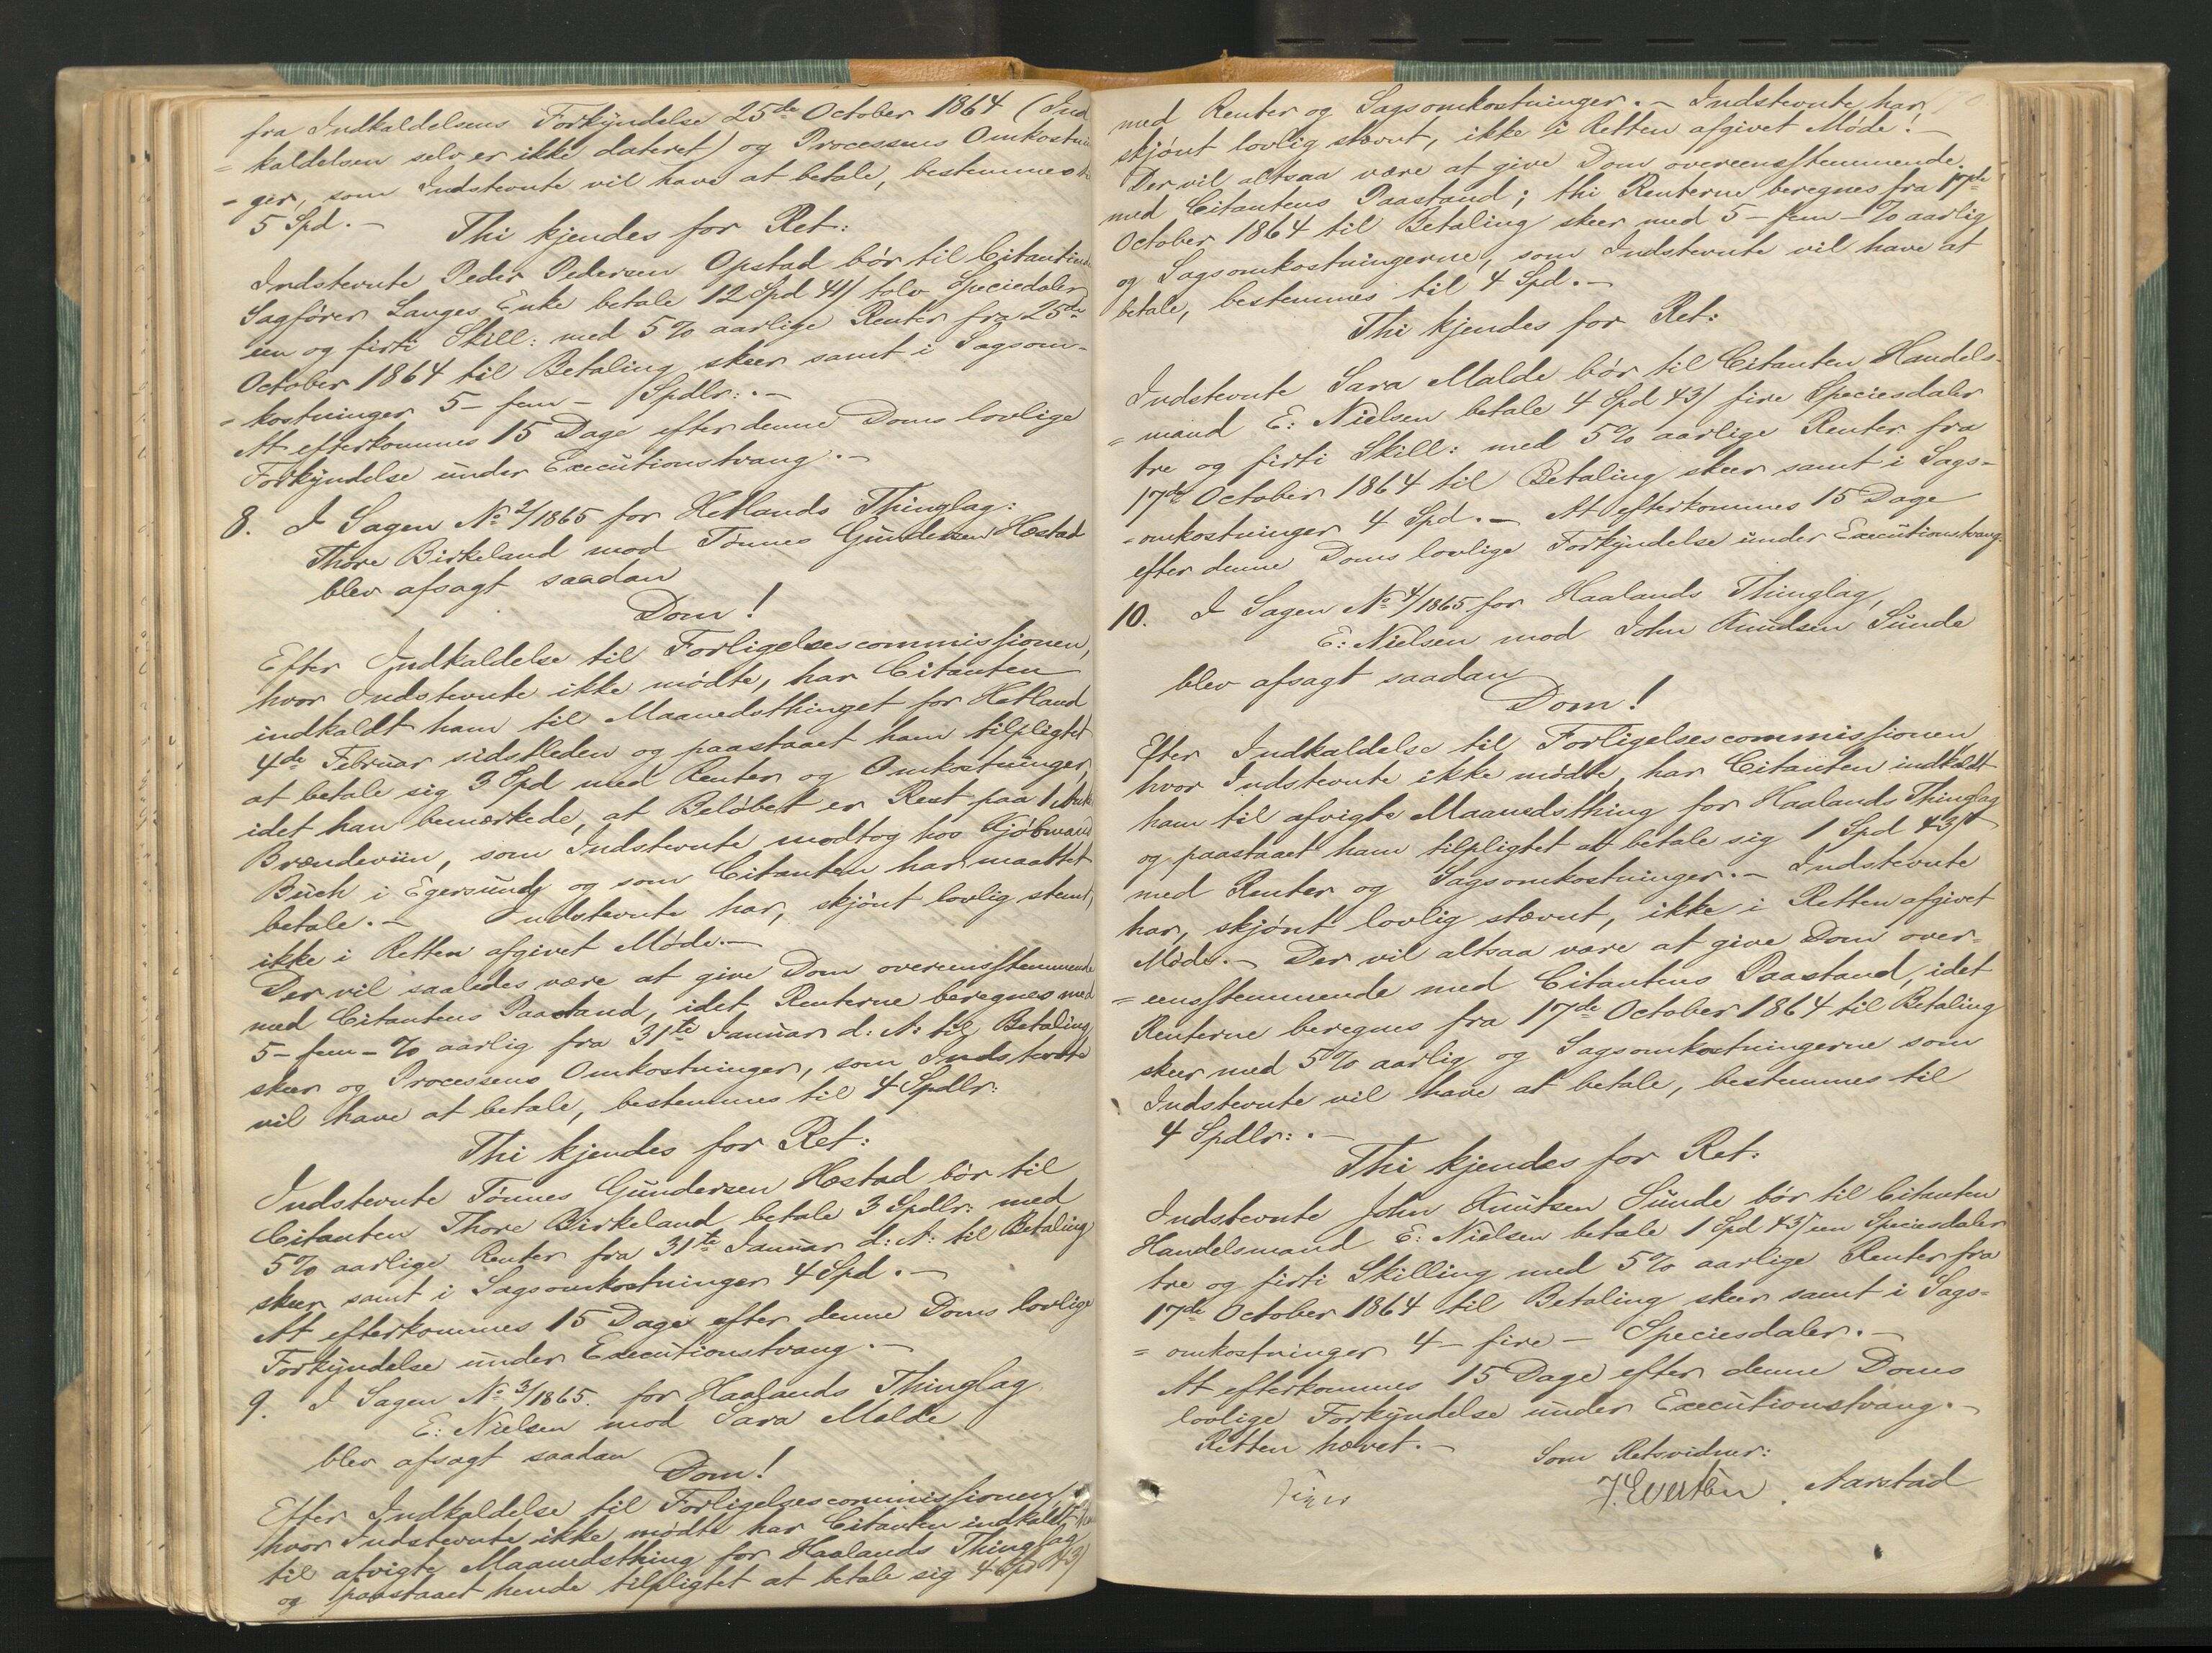 fra Indkaldelsens Forkyndelse 25de October 1864 (Ind
= kaldelsen selv er ikke dateret) og Processens Omkostnin
- ger, som Indstevnte vil have at betale, bestemmes til
5 Spd. -
Thi kjendes for Ret:
Indstevnte Peder Pedersen Opstad bør til Citantinden
Sagfører Langes Enke betale 12 Spd 41/ tolv Speciedaler
een og firti Skill: med 5% aarlige Renter fra 25de
October 1864 til Betaling skeer samt i Sagsom-
= kostninger 5 - fem - Spdlr: . -
At efterkommes 15 Dage efter denne Doms lovlige
Forkyndelse under Executionstvang. -
8. I Sagen No 2/1865 for Hetlands Thinglag:
Thore Birkeland mod Tønnes Gundersen Hæstad
blev afsagt saadan
Dom!
Efter Indkaldelse til Forligelsescommissionen,
hvor Indstevnte ikke mødte, har Citanten
indkaldt ham til Maanedsthinget for Hetland
4de Februar sidstleden og paastaaet ham tilpligtet
at betale sig 3 Spd med Renter og Omkostninger,
idet han bemærkede, at Beløbet er Rest paa 1 Anker
Brændeviin, som Indstevnte modtog hos Kjøbmand
Buch i Egersund og som Citanten har maattet
betale. - Indstevnte har, skjønt lovlig stevnt,
ikke i Retten afgivet Møde. -
Der vil saaledes være at give Dom overeensstemmende
med Citantens Paastand, idet Renterne beregnes med
5 - fem - % aarlig fra 31te Januar d: A: til Betaling
skeer og Processens Omkostninger, som Indstevnte
vil have at betale, bestemmes til 4 Spdlr:
Thi kjendes for Ret:
Indstevnte Tønnes Gundersen Hæstad bør til
Citanten Thore Birkeland betale 3 Spdlr: med
5% aarlige Renter fra 31te Januar d: A: til Betaling
skeer samt i Sagsomkostninger 4 Spd. -
At efterkommes 15 Dage efter denne Doms lovlige
Forkyndelse under Executionstvang. -
9. I Sagen No 3/1865. for Haalands Thinglag
E: Nielsen mod Sara Malde
blev afsagt saadan
Dom!
Efter Indkaldelse til Forligelsescommissionen,
hvor Indstevnte ikke mødte har Citanten indkaldt
til afvigte Maanedsthing for Haalands Thinglag
og paastaaet hende tilpligtet at betale sig 4 Spd 43/
med Renter og Sagsomkostninger. - Indstevnte har,
skjønt lovlig stævnt, ikke i Retten afgivet Møde! -
Der vil altsaa være at give Dom overeensstemmende
med Citantens Paastand; thi Renterne beregnes fra 17de
October 1864 til Betaling skeer med 5 - fem - % aarlig
og Sagsomkostningerne, som Indstevnte vil have at
betale, bestemmes til 4 Spd. -
Thi kjendes for Ret:
Indstevnte Sara Malde bør til Citanten Handels-
= mand E: Nielsen betale 4 Spd 43/ fire Speciesdaler
tre og firti Skill: med 5% aarlige Renter fra
17de October 1864 til Betaling skeer samt i Sags-
- omkostninger 4 Spd. - At efterkommes 15 Dage
efter denne Doms lovlige Forkyndelse under Executionstvang.
10. I Sagen No 4/1865 for Haalands Thinglag,
E: Nielsen mod John Knudsen Sunde
blev afsagt saadan
Dom!
Efter Indkaldelse til Forligelsescommissionen
hvor Indstevnte ikke mødte, har Citanten indkaldt
ham til afvigte Maanedsthing for Haalands Thinglag
og paastaaet ham tilpligtet at betale sig 1 Spd 43/
med Renter og Sagsomkostninger. - Indstevnte
har, skjønt lovlig stævnt, ikke i Retten afgivet
Møde. - Der vil altsaa være at give Dom over-
= eensstemmende med Citantens Paastand, idet
Renterne beregnes fra 17de October 1864 til Betaling
skeer med 5% aarlig og Sagsomkostningerne som
Indstevnte vil have at betale, bestemmes til
4 Spdlr: . -
Thi kjendes for Ret:
Indstevnte John Knutsen Sunde bør til Citanten
Handelsmand E: Nielsen betale 1 Spd 43/ een Speciesdaler
tre og firti Skilling med 5% aarlige Renter fra
17de October 1864 til Betaling skeer samt i Sags=
= omkostninger 4 - fire - Speciesdaler. -
At efterkommes 15 Dage efter denne Doms
lovlige Forkyndelse under Executionstvang. -
Retten hævet. - Som Retsvidner:
J. Evertsen Aarstad